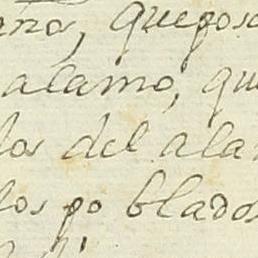 que posa
alamo, que
los del ala
los po blados